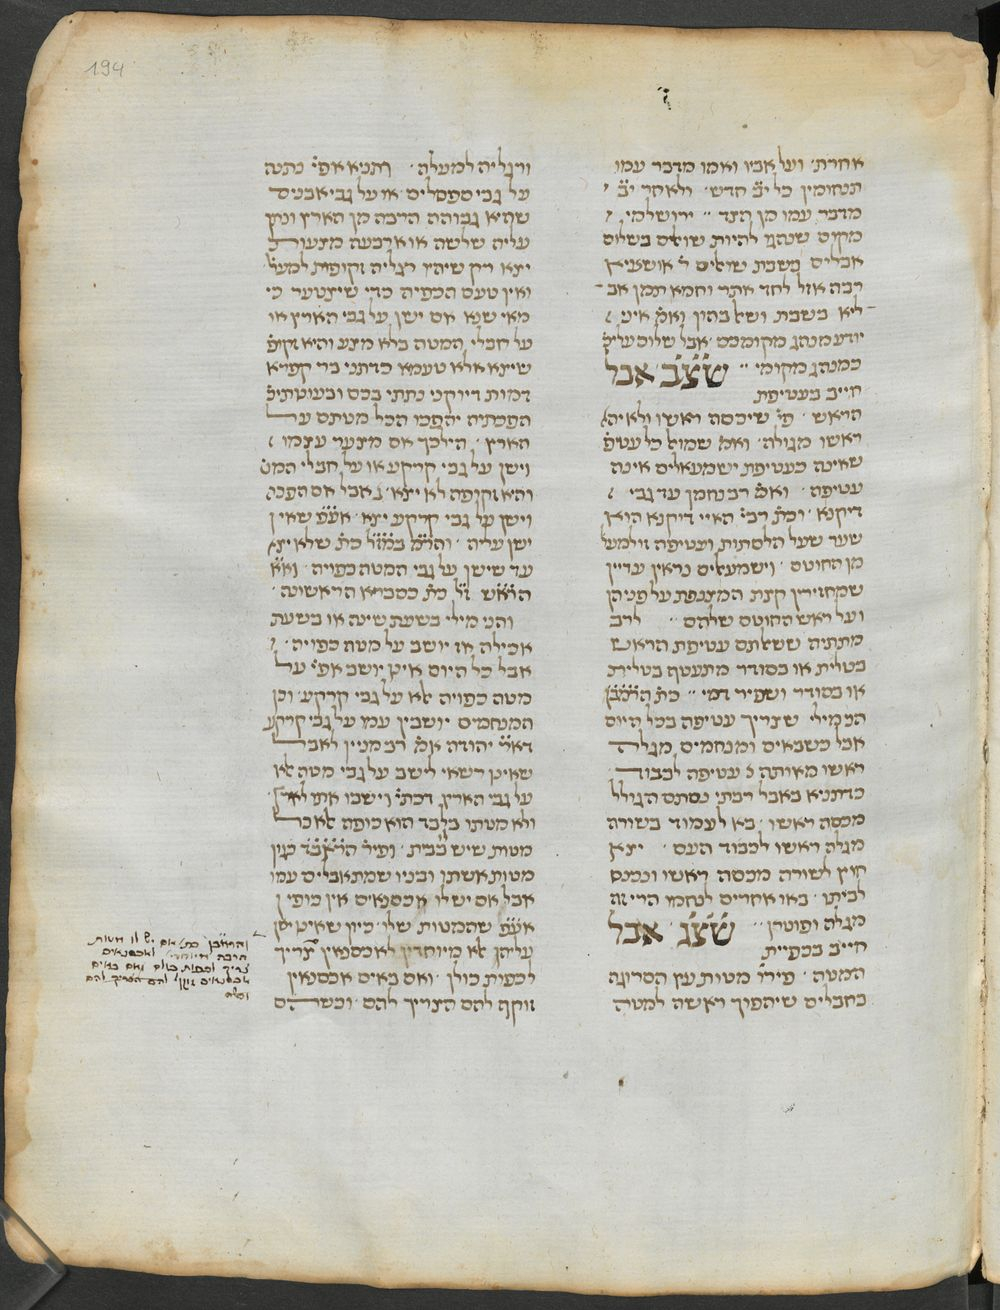 194
אחרת׳ ועל אביו ואמו מדבר עמו
תנחומין כל י״ב חדש׳ ולאחר י״ב
מדבר עמו מן הצד ״ ירושלמי׳
מקום שנהגו להיות שואלים בשלום
אבלים בשבת שואלים ר׳ אושעיא
רבה אזל לחד אתר וחמא תמן אב־
ליא בשבת ושאל בהון ואמ׳ איני
יודע מנהג מקומכם אבל שלום עליכ׳
כמנהג מקומי ״ שצ״ב אבל
חייב בעטיפת
הראש ׳ פי׳ שיכסה ראשו ולא יהא
ראשו מגולה׳ ואמ׳ שמואל כל עטיפ׳
שאינה כעטיפת ישמעאלים אינה
עטיפה ׳ ואמ׳ רב נחמן עד גבי
דיקנא ׳ וכת׳ רבי׳ האיי דיקנא הוא
שער שעל הלסתות ועטיפה זו למעל׳
מן החוטם ׳ וישמעאלים נראין עדיין
שמחזירין קצת המצנפת על פניהן
ועל ראש החוטם שלהם ״ לרב
מתתיה ששאלתם עטיפת הראש
בטלית או בסודר מתעטף בטלית
או בסודר ושפיר דמי ״ כת׳ הרמב״ן
הני מילי שצריך עטיפה בכל היום
אבל כשבאים ומנחמים מגלה
ראשו מאותה עטיפה לכבוד׳
כדתניא באבל רבתי נסתם הגולל
מכסה ראשו ׳ בא לעמוד בשורה
מגלה ראשו לכבוד העם ׳ יצא
חוץ לשורה מכסה ראשו ונכנס
לביתו ׳ באו אחרים לנחמו הרי זה
מגלה ופוטרן ״ שצ״ג אבל
חייב בכפיית
המטה ׳ פירו׳ מטות עץ הסרוגה
בחבלים שיהפוך ראשה למטה
ורגליה למעלה ׳ ותניא אפי׳ נתנה
על גבי ספסלים או על גבי אבנים
שהיא גבוהה הרבה מן הארץ ונתן
עליה שלשה או ארבעה מצעות
יצא רק שיהיו רגליה זקופות למעל׳
ואין טעם הכפיה כדי שיצטער כי
מאי שנא אם ישן על גבי הארץ או
על חבלי המטה בלא מצע והיא זקופ׳
שיצא אלא טעמא כדתני בר קפרא
דמות דיוקני נתתי בכם ובעונותיכ׳
הפכתיה יהפכו הכל מטתם על
הארץ ׳ הילכך אם מצער עצמו
וישן על גבי קרקע או על חבלי המט׳
והיא זקופה לא יצא ׳ אבל אם הפכה
וישן על גבי קרקע יצא ׳ אע״פ שאין
ישן עליה ׳ והר״ם במז״ל כת׳ שלא יצא
עד שישן על גבי המטה כפויה ׳ וא״א
הרא״ש ז״ל כת׳ כסברא הראשונה ׳
והני מילי בשעת שינה או בשעת
אכילה אז יושב על מטה כפויה ׳
אבל כל היום אינו יושב אפי׳ על
מטה כפויה אלא על גבי קרקע ׳ וכן
המנחמים יושבין עמו על גבי קרקע
דאמ׳ ר׳ יהודה אמ׳ רב מניין לאבל
שאינו רשאי לישב על גבי מטה אלא
על גבי הארץ דכתי׳ וישבו אתו לארץ ׳
ולא מטתו בלבד הוא כופה אלא כל
מטות שיש בבית ׳ ופיר׳ הראב״ד כגון
מטות אשתו ובניו שמתאבלים עמו
אבל אם יש לו אכסנאים אין כופין
אע״פ שהמטות שלו כיון שאינו ישן
עליהן אלא מיוחדין לאכסנאין צריך
לכפות כולן ׳ ואם באים אכסנאין
זוקף להם הצריך להם ׳ וכשהם
והרמב״ן כת׳ אם יש לו מטות
הרבה לאכסנאים
צריך לכפות כולם ואם באים
אכסנאים זוקף להם הצריך להם